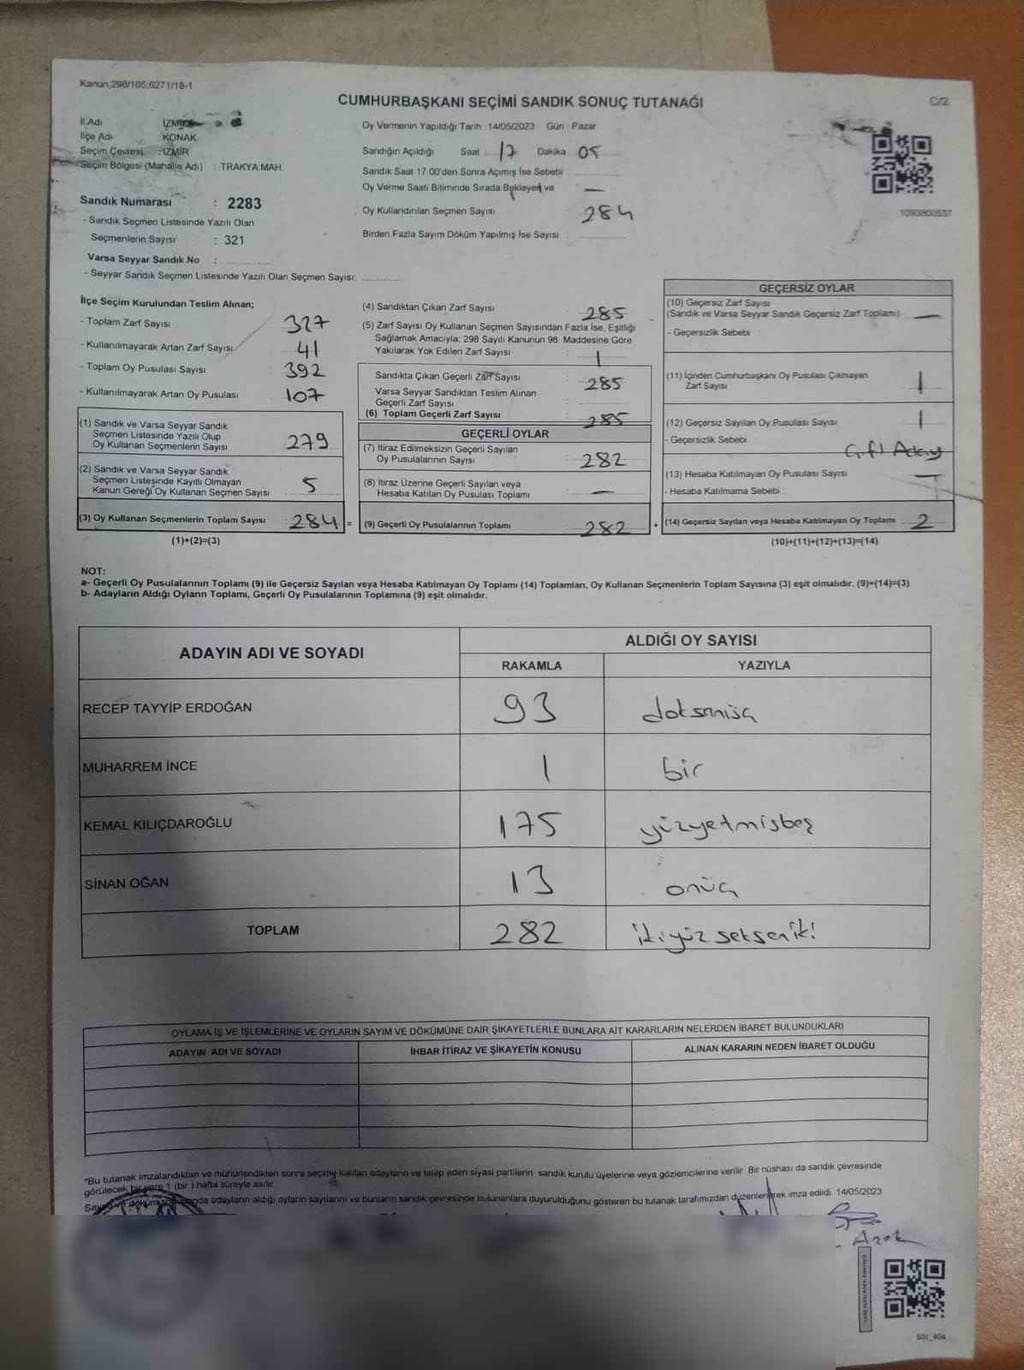 Kanun;298/105;6271/18-1
CUMHURBAŞKANI SEÇİMİ SANDIK SONUÇ TUTANAĞI
C/2
İl Adı
İlçe Adı KONAK
Seçim Çevresi : İZMİR
Seçim Bölgesi (Mahalle Adı) : TRAKYA MAH.
Oy Vermenin Yapıldığı Tarih :14/05/2023 Gün : Pazar
Sandığın Açıldığı Saat 17 Dakika 05
Sandık Saat 17:00'den Sonra Açımış İse Sebebi
Oy Verme Saati Bitiminde Sırada Bekleyen ve —
Oy Kullandırılan Seçmen Sayısı 284
Birden Fazla Sayım Döküm Yapılmış İse Sayısı
1093800537
Sandık Numarası : 2283
- Sandık Seçmen Listesinde Yazılı Olan
Seçmenlerin Sayısı : 321
Varsa Seyyar Sandık No :
- Seyyar Sandık Seçmen Listesinde Yazılı Olan Seçmen Sayısı:
İlçe Seçim Kurulundan Teslim Alınan;
- Toplam Zarf Sayısı 327
- Kullanılmayarak Artan Zarf Sayısı 41
- Toplam Oy Pusulası Sayısı 392
- Kullanılmayarak Artan Oy Pusulası 107
(1) Sandık ve Varsa Seyyar Sandık
Seçmen Listesinde Yazılı Olup
Oy Kullanan Seçmenlerin Sayısı 279
(2) Sandık ve Varsa Seyyar Sandık
Seçmen Listesinde Kayıtlı Olmayan
Kanun Gereği Oy Kullanan Seçmen Sayısı 5
(3) Oy Kullanan Seçmenlerin Toplam Sayısı 284 =
(1)+(2)=(3)
(4) Sandıktan Çıkan Zarf Sayısı 285
(5) Zarf Sayısı Oy Kullanan Seçmen Sayısından Fazla İse, Eşitliği
Sağlamak Amacıyla; 298 Sayılı Kanunun 98. Maddesine Göre
Yakılarak Yok Edilen Zarf Sayısı 1
Sandıkta Çıkan Geçerli Zarf Sayısı 285
Varsa Seyyar Sandıktan Teslim Alınan
Geçerli Zarf Sayısı
(6) Toplam Geçerli Zarf Sayısı 285
GEÇERLİ OYLAR
(7) İtiraz Edilmeksizin Geçerli Sayılan
Oy Pusulalarının Sayısı 282
(8) İtiraz Üzerine Geçerli Sayılan veya
Hesaba Katılan Oy Pusulası Toplamı —
(9) Geçerli Oy Pusulalarının Toplamı 282 +
GEÇERSİZ OYLAR
(10) Geçersiz Zarf Sayısı
(Sandık ve Varsa Seyyar Sandık Geçersiz Zarf Toplamı) —
- Geçersizlik Sebebi
(11) İçinden Cumhurbaşkanı Oy Pusulası Çıkmayan
Zarf Sayısı 1
(12) Geçersiz Sayılan Oy Pusulası Sayısı 1
- Geçersizlik Sebebi
(13) Hesaba Katılmayan Oy Pusulası Sayısı —
- Hesaba Katılmama Sebebi
(14) Geçersiz Sayılan veya Hesaba Katılmayan Oy Toplamı 2
(10)+(11)+(12)+(13)=(14)
NOT:
a- Geçerli Oy Pusulalarının Toplamı (9) ile Geçersiz Sayılan veya Hesaba Katılmayan Oy Toplamı (14) Toplamları, Oy Kullanan Seçmenlerin Toplam Sayısına (3) eşit olmalıdır. (9)+(14)=(3)
b- Adayların Aldığı Oyların Toplamı, Geçerli Oy Pusulalarının Toplamına (9) eşit olmalıdır.
ADAYIN ADI VE SOYADI
ALDIĞI OY SAYISI
RAKAMLA YAZIYLA
RECEP TAYYİP ERDOĞAN 93 doksanüç
MUHARREM İNCE 1 bir
KEMAL KILIÇDAROĞLU 175 yüzyetmişbeş
SİNAN OĞAN 13 onüç
TOPLAM 282 ikiyüzsekseniki
OYLAMA İŞ VE İŞLEMLERİNE VE OYLARIN SAYIM VE DÖKÜMÜNE DAİR ŞİKAYETLERLE BUNLARA AİT KARARLARIN NELERDEN İBARET BULUNDUKLARI
ADAYIN ADI VE SOYADI İHBAR İTİRAZ VE ŞİKAYETİN KONUSU ALINAN KARARIN NEDEN İBARET OLDUĞU
*Bu tutanak imzalandıktan ve mühürlendikten sonra seçime katılan adayların ve talep eden siyasi partilerin sandık kurulu üyelerine veya gözlemcilerine verilir. Bir nüshası da sandık çevresinde
görülecek bir yere 1 (bir) hafta süreyle asılır.
adayların aldığı oyların sayılarını ve bunların sandık çevresinde bulunanlara duyurulduğunu gösteren bu tutanak tarafımızdan düzenlenerek imza edildi. 14/05/2023